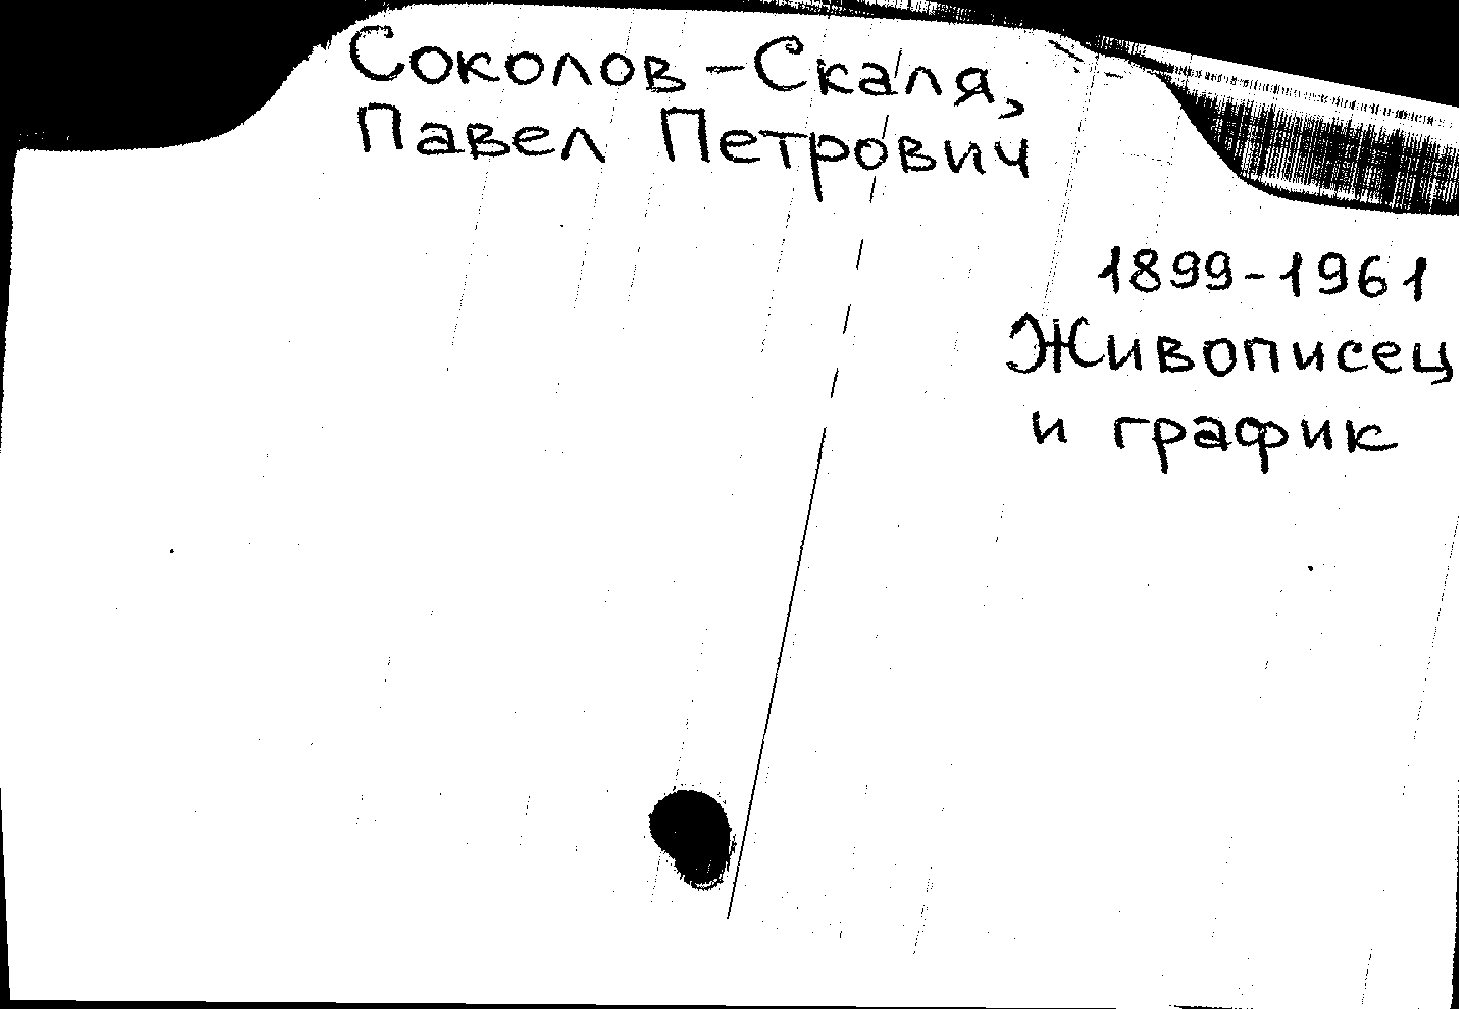 Соколов-Скаля,
Павел Петрович
1899-1961
Живописец
и график